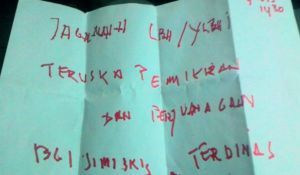 1430
JAGALAH LBH/YLBHI
TERUSKA PEMIKIRAN
DAN PERJUANAGAN
BGI SIMISKIS TERDINAS